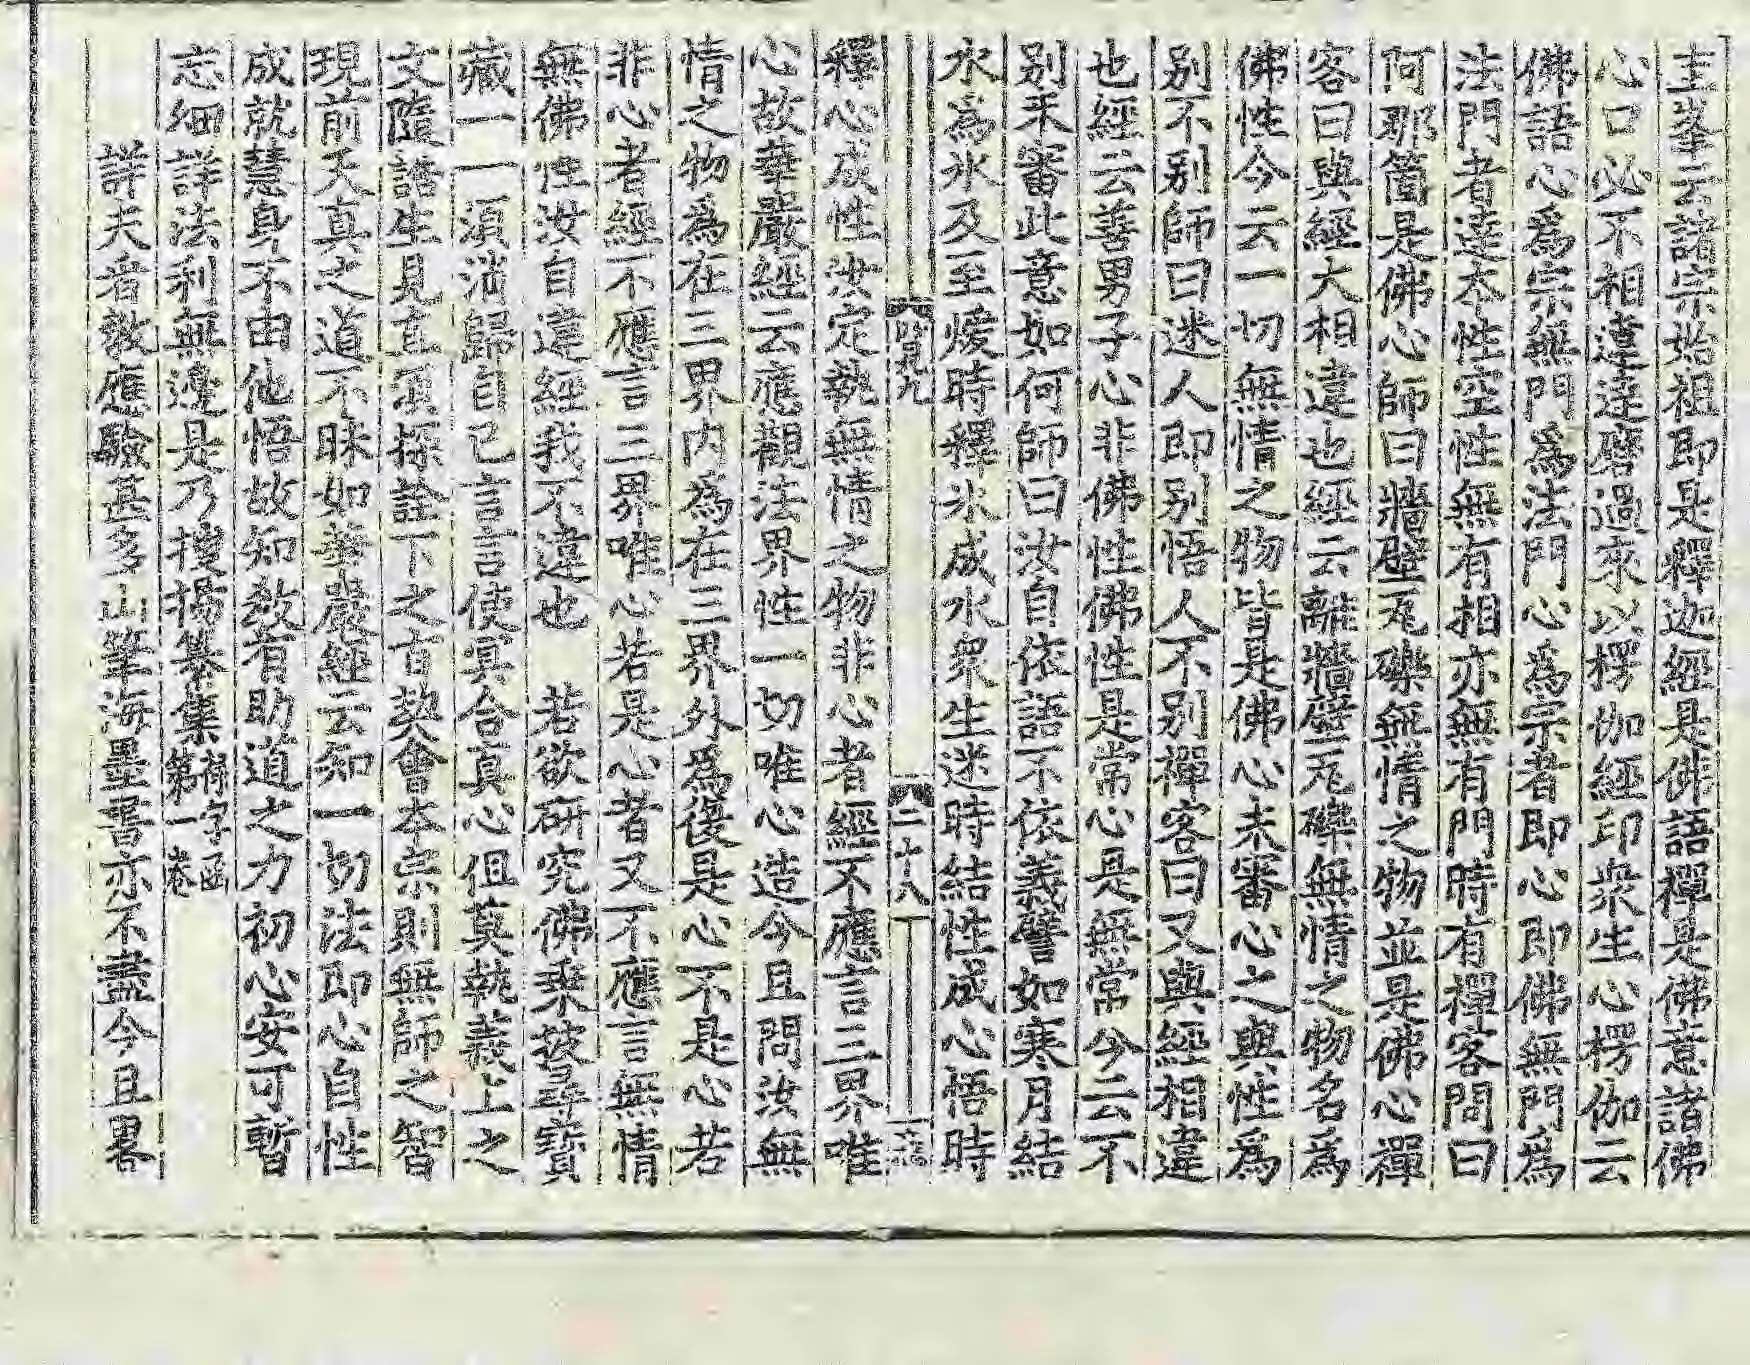 圭峯云諸宗始祖即是釋迦經是佛語禪是佛意諸佛
心口必不相違達磨過來以楞伽經印衆生心楞伽云
佛語心爲宗無門爲法門心爲宗者即心即佛無門爲
法門者達本性空性無有相亦無有門時有禪客問曰
阿那箇是佛心師曰牆壁瓦礫無情之物並是佛心禪
客曰與經大相違也經云離牆壁瓦礫無情之物名爲
佛性今云一切無情之物皆是佛心未審心之與性爲
别不别師曰迷人即别悟人不别禪客曰又與經相違
也經云善男子心非佛性佛性是常心是無常今云不
别未審此意如何師曰汝自依語不依義譬如寒月結
水爲氷及至煖時釋氷成水衆生迷時結性成心悟時
二十八
釋心成性汝定執無情之物非心者經不應言三界唯
心故華嚴經云應觀法界性一切唯心造今且問汝無
情之物爲在三界内爲在三界外爲復是心不是心若
非心者經不應言三界唯心若是心者又不應言無情
無佛性汝自違經我不違也　若欲研究佛乘披尋寶
藏一一須消歸自己言言使冥合真心但莫執義上之
文隨語生見直須探詮下之旨契會本宗則無師之智
現前天真之道不昧如華嚴經云知一切法即心自性
成就慧身不由他悟故知教有助道之力初心安可暫
忘細詳法利無邊是乃搜揚纂集第一卷
詳夫音教應驗甚多山筆海墨書亦不盡今且畧